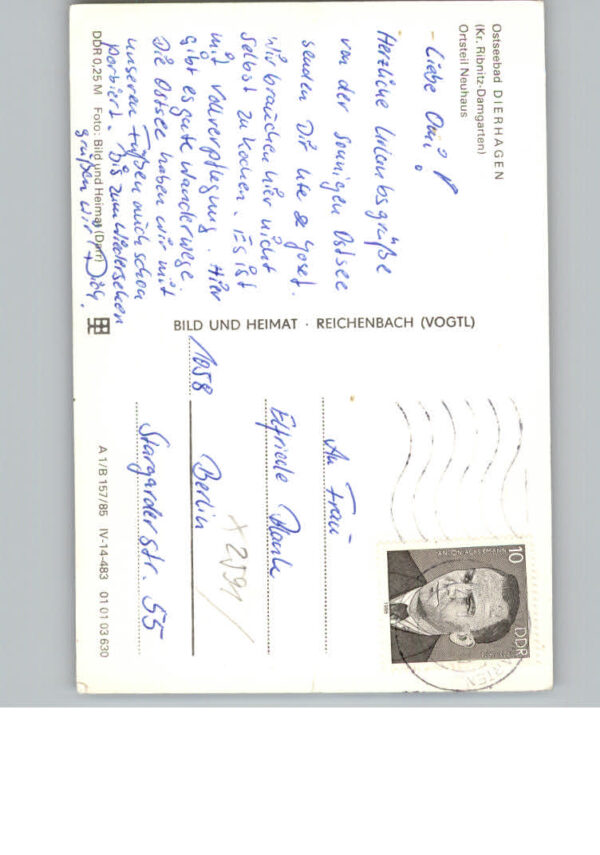 Ostseebad DIERHAGEN
(Kr. Ribnitz-Damgarten)
Ortsteil Neuhaus
- Liebe Omi!
Herzliche Urlaubsgrüße
von der sonnigen Ostsee
senden Dir Ute & Josef.
Wir brauchen hier nicht
selbst zu kochen. Es ist
mit Vollverpflegung. Hier
gibt es gute Wanderwege.
Die Ostsee haben wir mit
unseren Füßen auch schon
probiert. Bis zum Wiedersehen
grüßen wir Dich.
DDR 0,25 M Foto: Bild und Heimat (Darr)
BILD UND HEIMAT · REICHENBACH (VOGTL)
10
DDR
ANTON ACKERMANN
An Frau
Elfriede
1058 Berlin
x 2591/
Stargarder Str. 55
A 1/B 157/85 IV-14-483 01 01 03 630